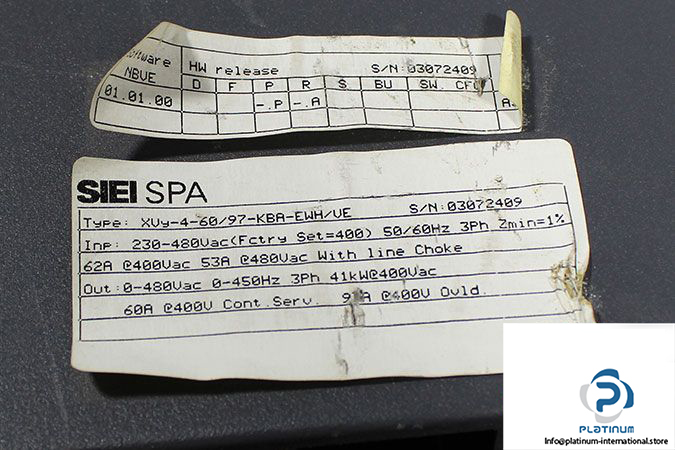 oftware
NBVE
01.01.00
HW release S/N:03072409
D F P R S BU SW. CF
-.P -.A
A
SIEI SPA
Type: XVy-4-60/97-KBA-EWH/VE S/N:03072409
Inp: 230-480Vac(Fctry Set=400) 50/60Hz 3Ph Zmin=1%
62A @400Vac 53A @480Vac With line Choke
Out:0-480Vac 0-450Hz 3Ph 41kW@400Vac
60A @400V Cont.Serv. A @400V Ovld.
PLATINUM
Info@platinum-international.store